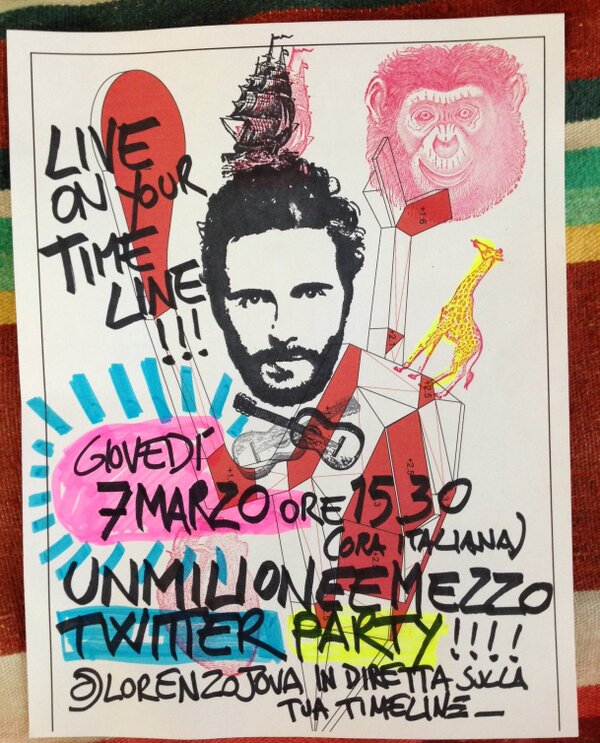 LIVE
ON YOUR
TIME
LINE
!!!
+1.6
+2
+2.5
GIOVEDÍ
7 MARZO ORE 15.30
(ORA ITALIANA)
UNMILIONEEMEZZO
TWITTER PARTY!!!!
@LORENZOJOVA IN DIRETTA SULLA
TUA TIMELINE_